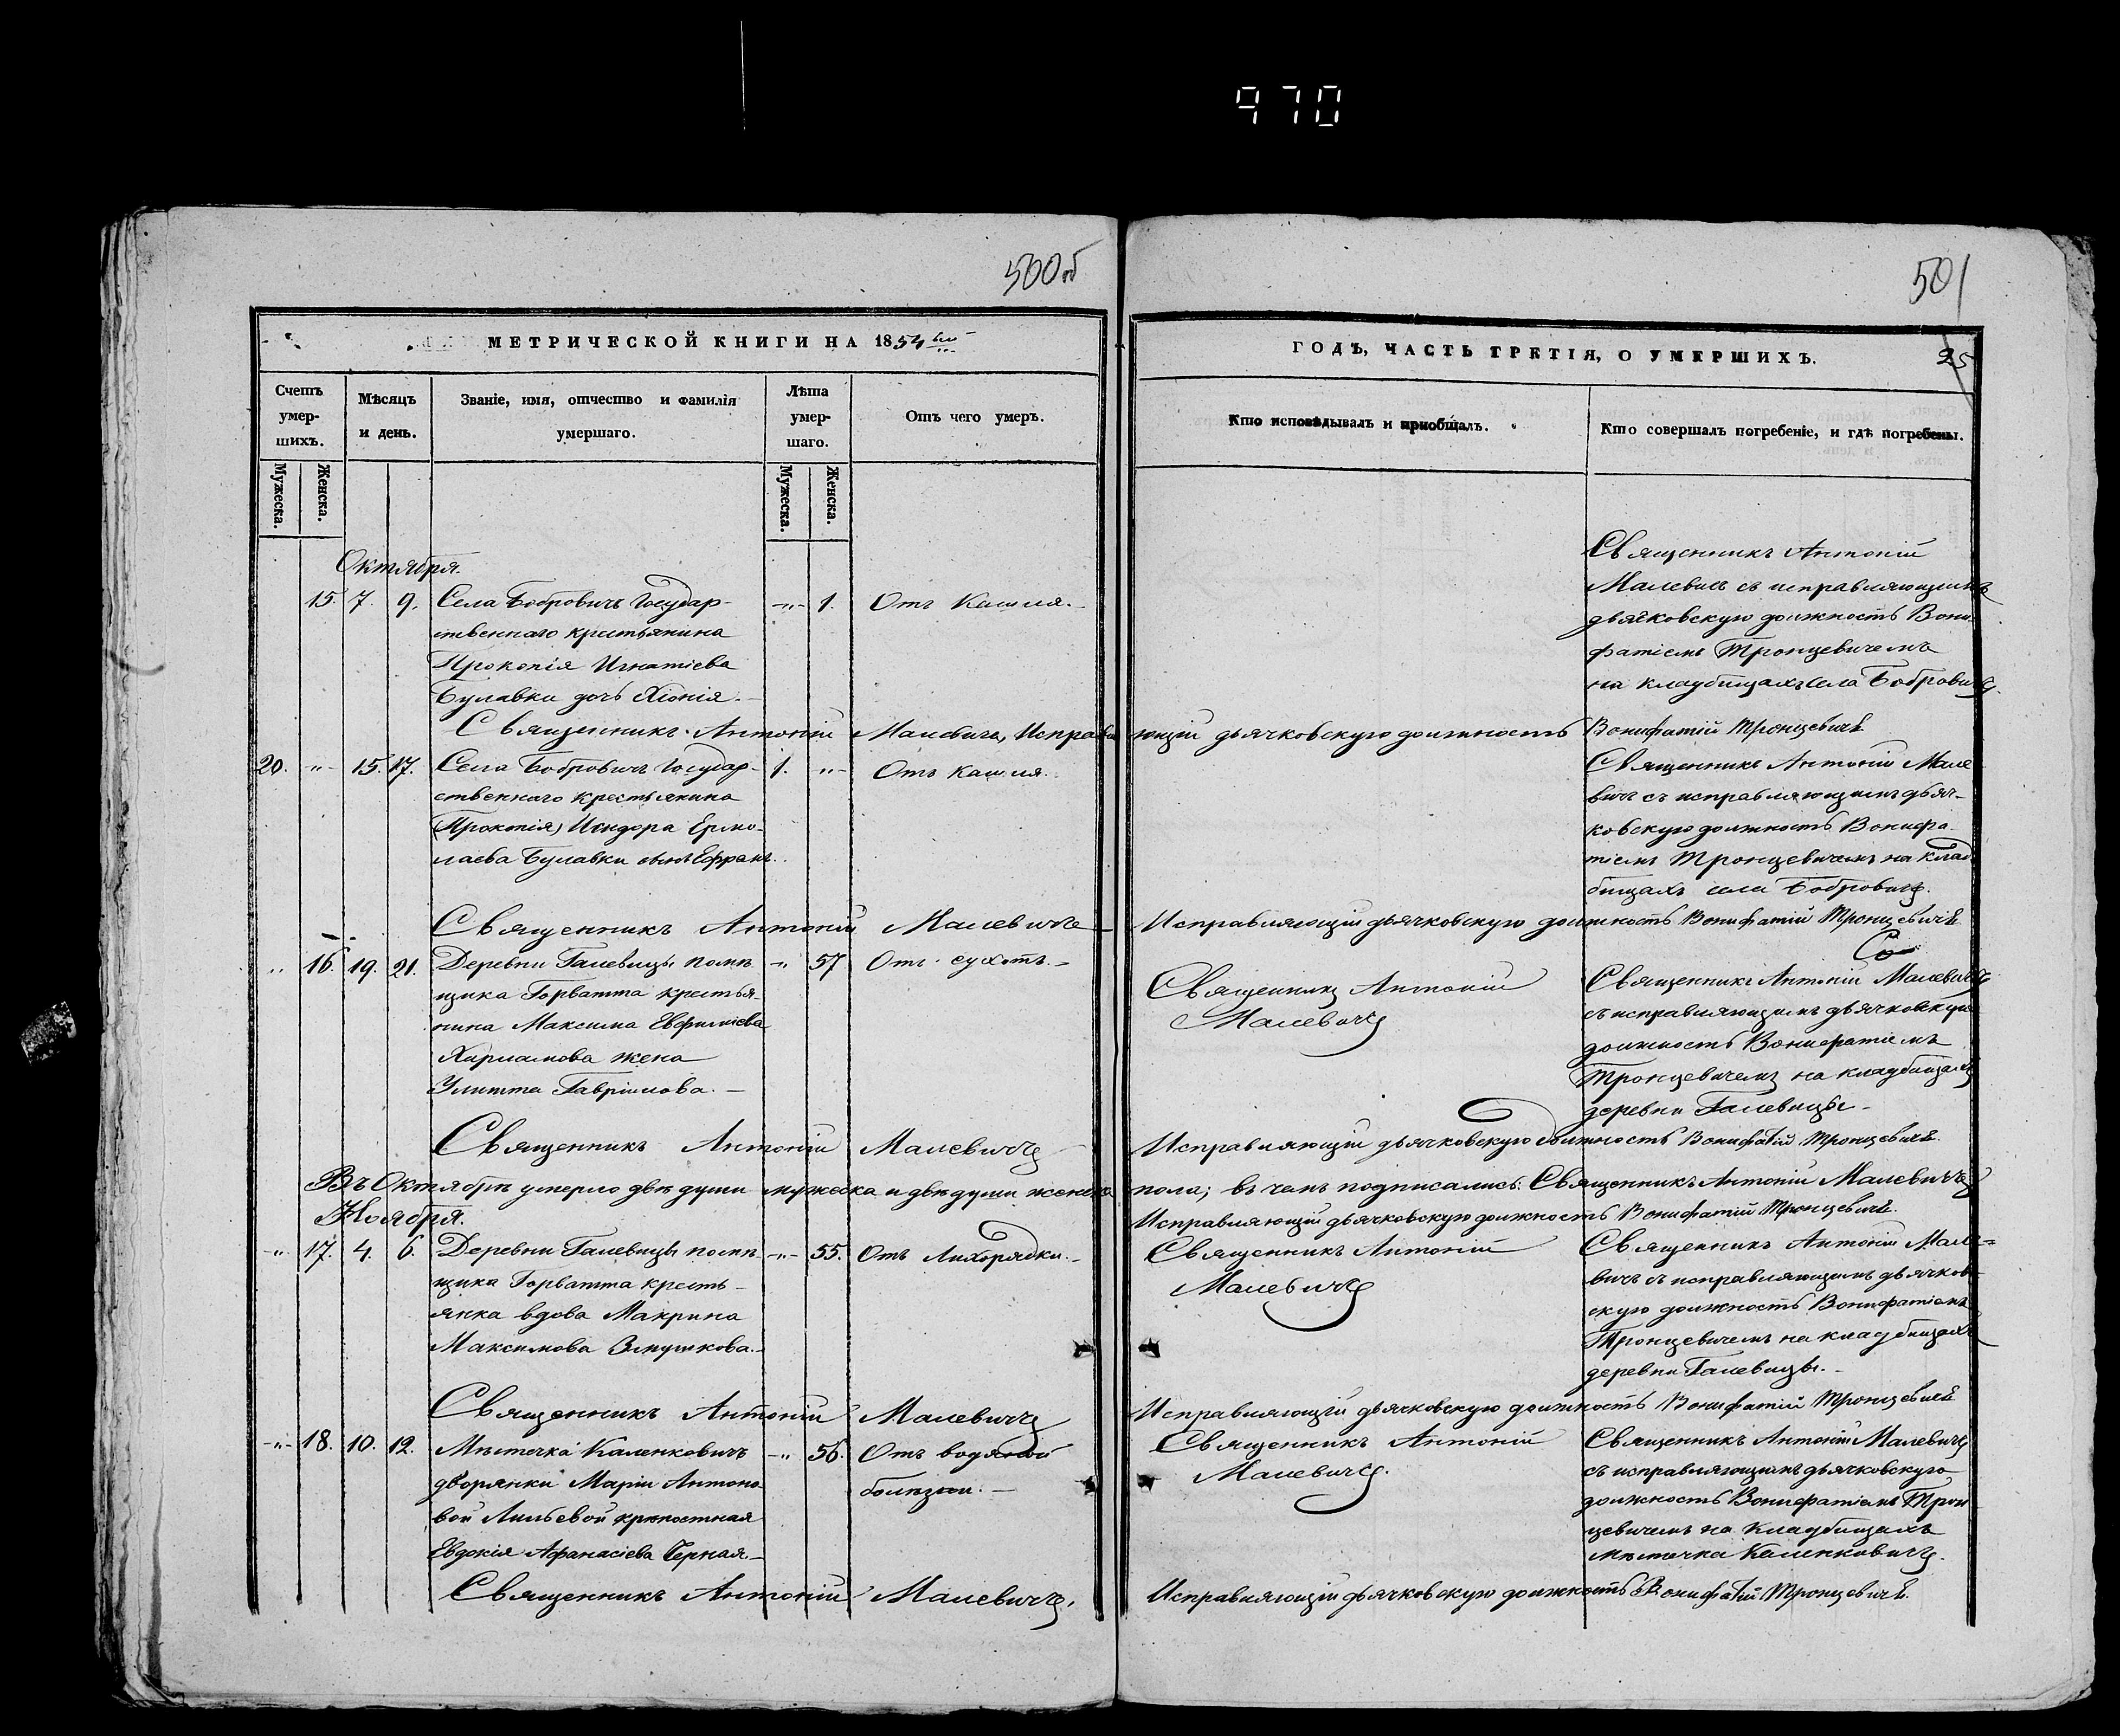 970
500об
501
МЕТРИЧЕСКОЙ КНИГИ НА 1854ый
ГОДЪ, ЧАСТЬ ТРЕТІЯ, О УМЕРШИХЪ.
25
Счетъ умер-шихъ.
Мужеска.
Женска.
Мѣсяцъ и день.
Званіе, имя, отчество и фамилія умершаго.
Лѣта умер-шаго.
Мужеска.
Женска.
Отъ чего умеръ.
Кто исповѣдывалъ и пріобщалъ.
Кто совершалъ погребеніе, и гдѣ погребены.
Октября.
15. 7. 9. Села Бобровичъ Государ- -"- 1. Отъ Кашля.-
ственнаго крестьянина
Прокопія Игнатіева
Булавки дочь Хіонія.-
Священникъ Антоній
Малевичъ съ исправляющимъ
дьячковскую должность Вони-
фатіемъ Тронцевичемъ
на кладбищахъ села Бобровичъ.
Священникъ Антоній Малевичъ, Исправляющій дьячковскую должность Вонифатій Тронцевичъ
20. -"- 15. 17. Села Бобровичъ Государ- 1. "- Отъ кашля.
ственнаго крестьянина
(Прокопія) Исидора Ермо-
лаева Булавки сынъ Ефрамъ.
Священникъ Антоній Мале-
вичъ съ исправляющимъ дьяч-
ковскую должность Вонифа-
тіемъ Тронцевичемъ на клад-
бищахъ села Бобровичъ.
Священникъ Антоній Малевичъ Исправляющій дьячковскую должность Вонифатій Тронцевичъ
" 16. 19. 21. Деревни Галевицы помѣ- -"- 57 Отъ сухотъ.-
щика Горватта крестья-
нина Максима Евфиміева
Харламова жена
Улитта Гавріилова.-
Священникъ Антоній
Малевичъ
Священникъ Антоній Малевичъ
съ исправляющимъ дьячковскую
должность Вонифатіемъ
Тронцевичемъ на кладбищахъ
деревни Галевицы-
Священникъ Антоній Малевичъ Исправляющій дьячковскую должность Вонифатій Тронцевичъ.
Въ Октябрѣ умерло двѣ души мужеска и двѣ души женска пола; въ чемъ подписались: Священникъ Антоній Малевичъ
Исправляющій дьячковскую должность Вонифатій Тронцевичъ.
Ноября.
-" 17. 4. 6. Деревни Галевицы помѣ- -"- 55. Отъ Лихорадки.-
щика Горватта кресть-
янка вдова Макрина
Максимова Змушкова.-
Священникъ Антоній
Малевичъ
Священникъ Антоній Мале=
вичъ съ исправляющимъ дьячков-
скую должность Вонифатіемъ
Тронцевичемъ на кладбищахъ
деревни Галевицы.-
Священникъ Антоній Малевичъ Исправляющій дьячковскую должность Вонифатій Тронцевичъ
-"- 18. 10. 12. Мѣстечка Каленковичъ -" 56. Отъ водяной
дворянки Маріи Антоно- болѣзни.-
вой крѣпостная
Евдокія Афанасіева Черная.-
Священникъ Антоній
Малевичъ.
Священникъ Антоній Малевичъ
съ исправляющимъ дьячковскую
должность Вонифатіемъ Трон-
цевичемъ на кладбищахъ
мѣстечка Каленковичъ.
Священникъ Антоній Малевичъ. Исправляющій дьячковскую должность Вонифатій Тронцевичъ.